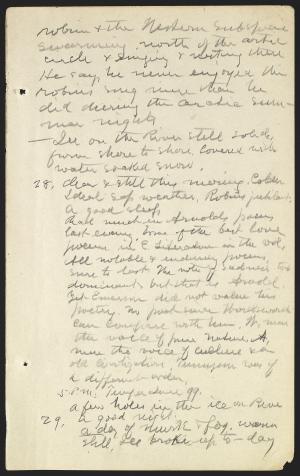 robin & the Western Subspecies
swarming north of the arctic
circle & singing & nesting there
He says he never enjoyed the
robins song more than he
did during the arctic sum-
mer nights.
— Ice on the River still solid,
from shore to shore, covered with
water soaked snow.
28, Clear & still this morning. Colder
Ideal sap weather, Robins jubilant.
A good sleep.
Read much in Arnolds poems
last evening. Some of the best lover
poems in E literature in the vol.
All notable & enduring poems,
sure to last. The note of sadness too
dominant, but that is Arnold.
Yet Emerson did not value his
poetry. No poet since Wordsworth
can compare with him. W. was
the voice of pure nature, A.
more the voice of culture & an
old civilization. Tennyson was of
a different order.
5 P.M. Temperature 49.
a few holes in the ice on River
29, A good night
a day of murk & fog, warm
still, Ice broke up to-day